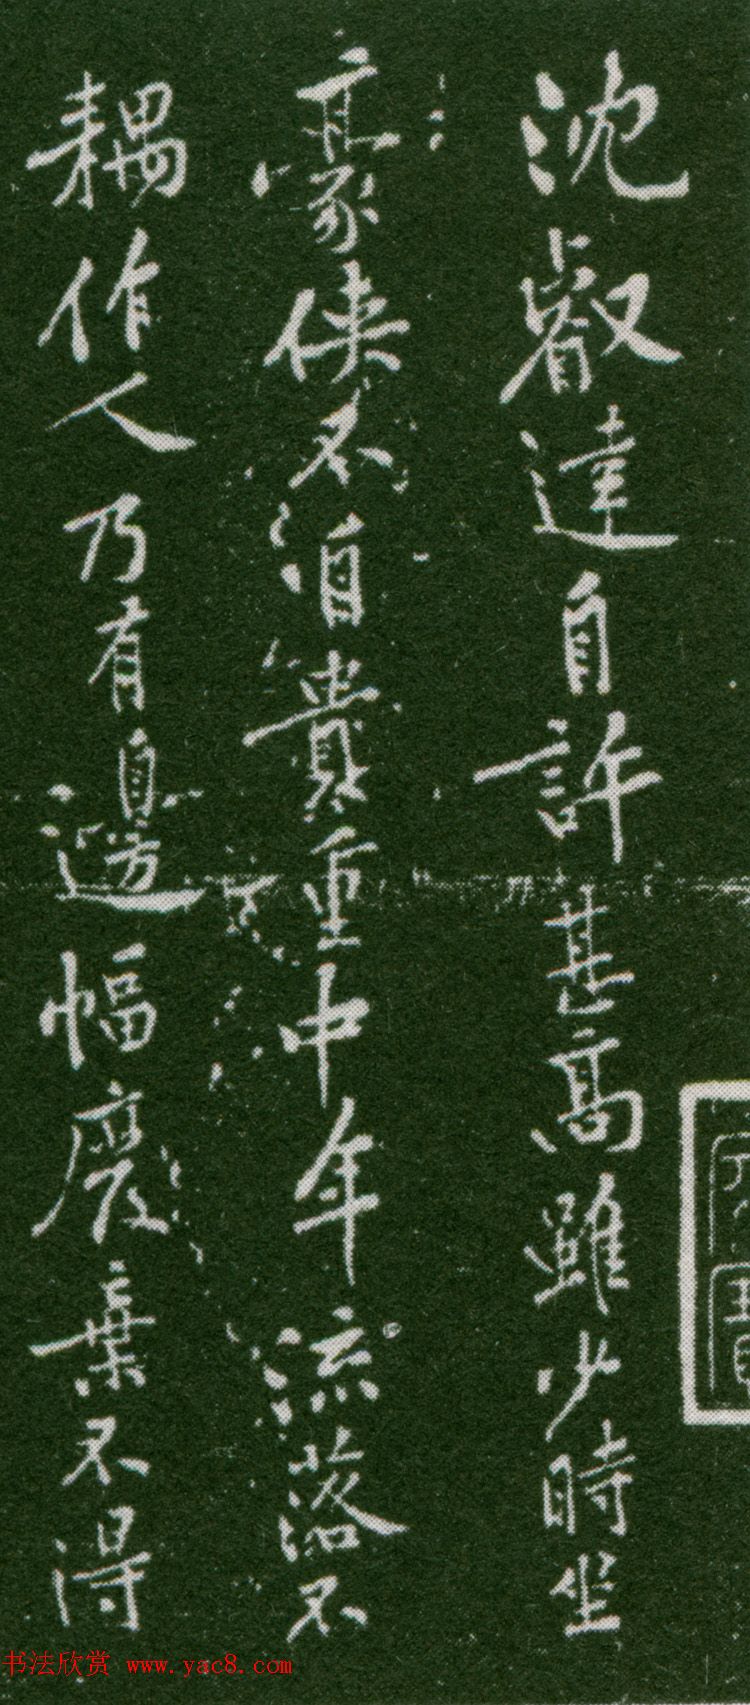 沈叡達自許甚高雖少時坐
豪俠不自貴重中年流落不
耦作人乃有自邊幅廢棄不得
书法欣赏 www.yac8.com